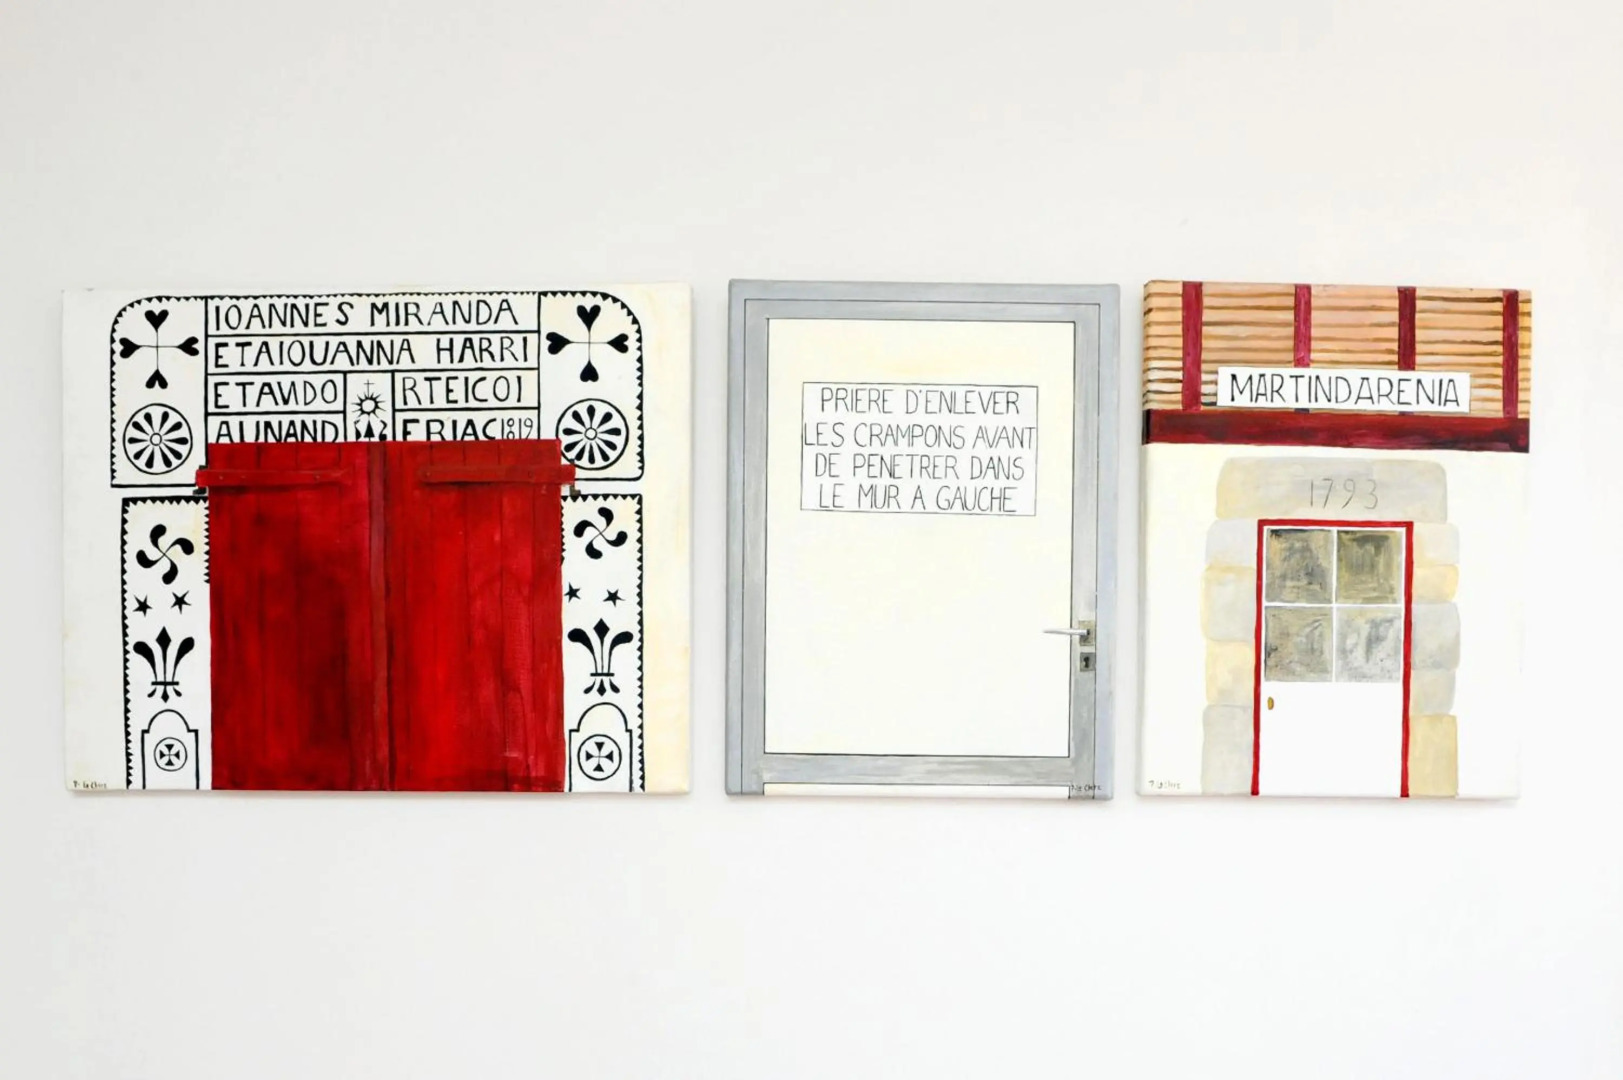 IOANNES MIRANDA
ETAIOUANNA HARRI
ETAUDO RTEICOI
AUNAND ERIAC 1819
PRIERE D'ENLEVER
LES CRAMPONS AVANT
DE PENETRER DANS
LE MUR A GAUCHE
MARTINDARENIA
1793